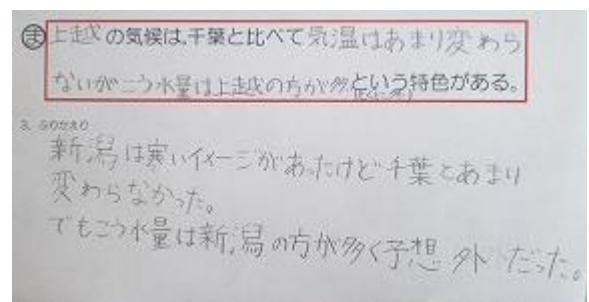 ま 上越の気候は、千葉と比べて気温はあまり変わら
ないがこう水量は上越の方が多という特色がある。
3. ふりかえり
新潟は寒いイメージがあったけど千葉とあまり
変わらなかった。
でもこう水量は新潟の方が多く予想外だった。